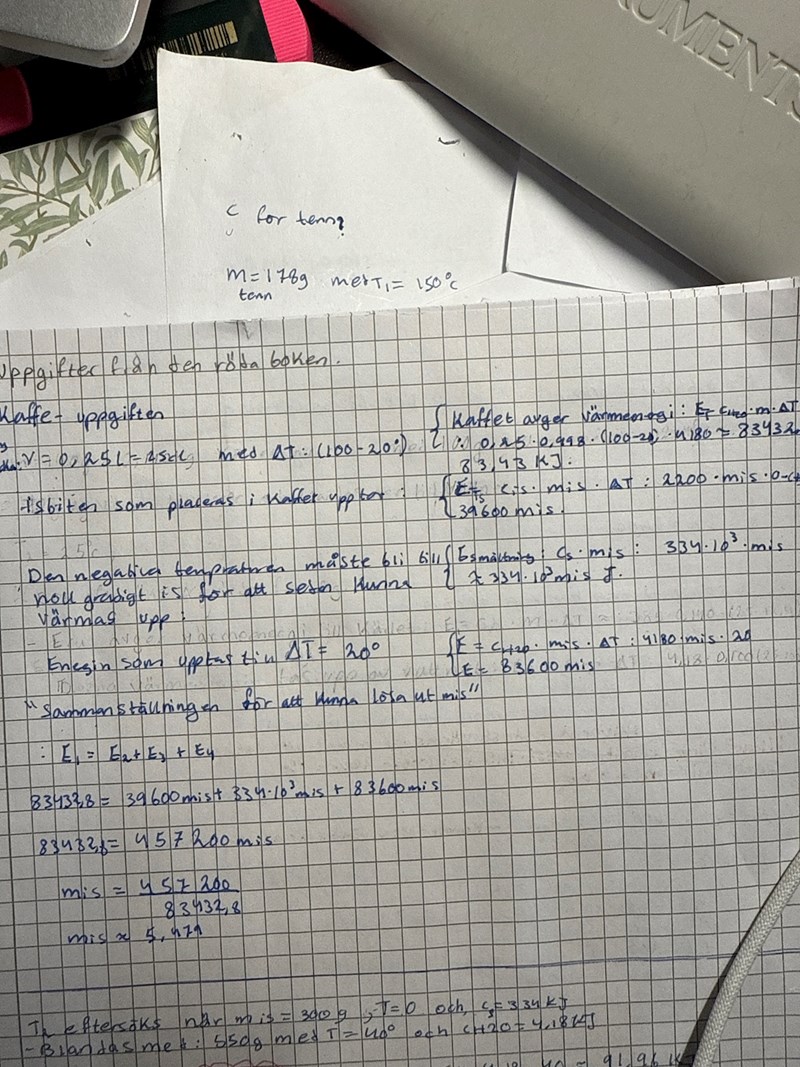 UMENTS
c för tenn?
m = 178g med T₁ = 150°C
tenn
Uppgifter från den röda boken.
Kaffe-uppgiften
V = 0,25L = 2,5dL med ΔT: (100-20°)
{ Kaffet avger värmeenergi: E₁ = cH20·m·ΔT
: 0,25·0,998·(100-20)·4180 = 83432
83,43 KJ.
Isbiten som placeras i kaffet upptar:
{ E = cis·mis·ΔT: 2200·mis·0-(
39600 mis.
Den negativa tempraturen måste bli till
noll gradigt is för att sedan kunna
värmas upp:
{ Esmältning: Cs·mis: 334·10³·mis
≈ 334·10³mis J.
Energin som upptas till ΔT = 20°
{ E = cH20·mis·ΔT: 4180·mis·20
E = 83600 mis
"Sammanställningen för att kunna lösa ut mis"
: E₁ = E₂+E₃+E₄
83432,8 = 39600mis + 334·10³mis + 83600mis
83432,8 = 457200mis
mis = 457 200
83432,8
mis ≈ 5,479
eftersöks när mis = 300g, T=0 och, cs = 334 KJ
- Blandas med: 550g med T = 40° och cH20 = 4,18KJ
= 91,96 K